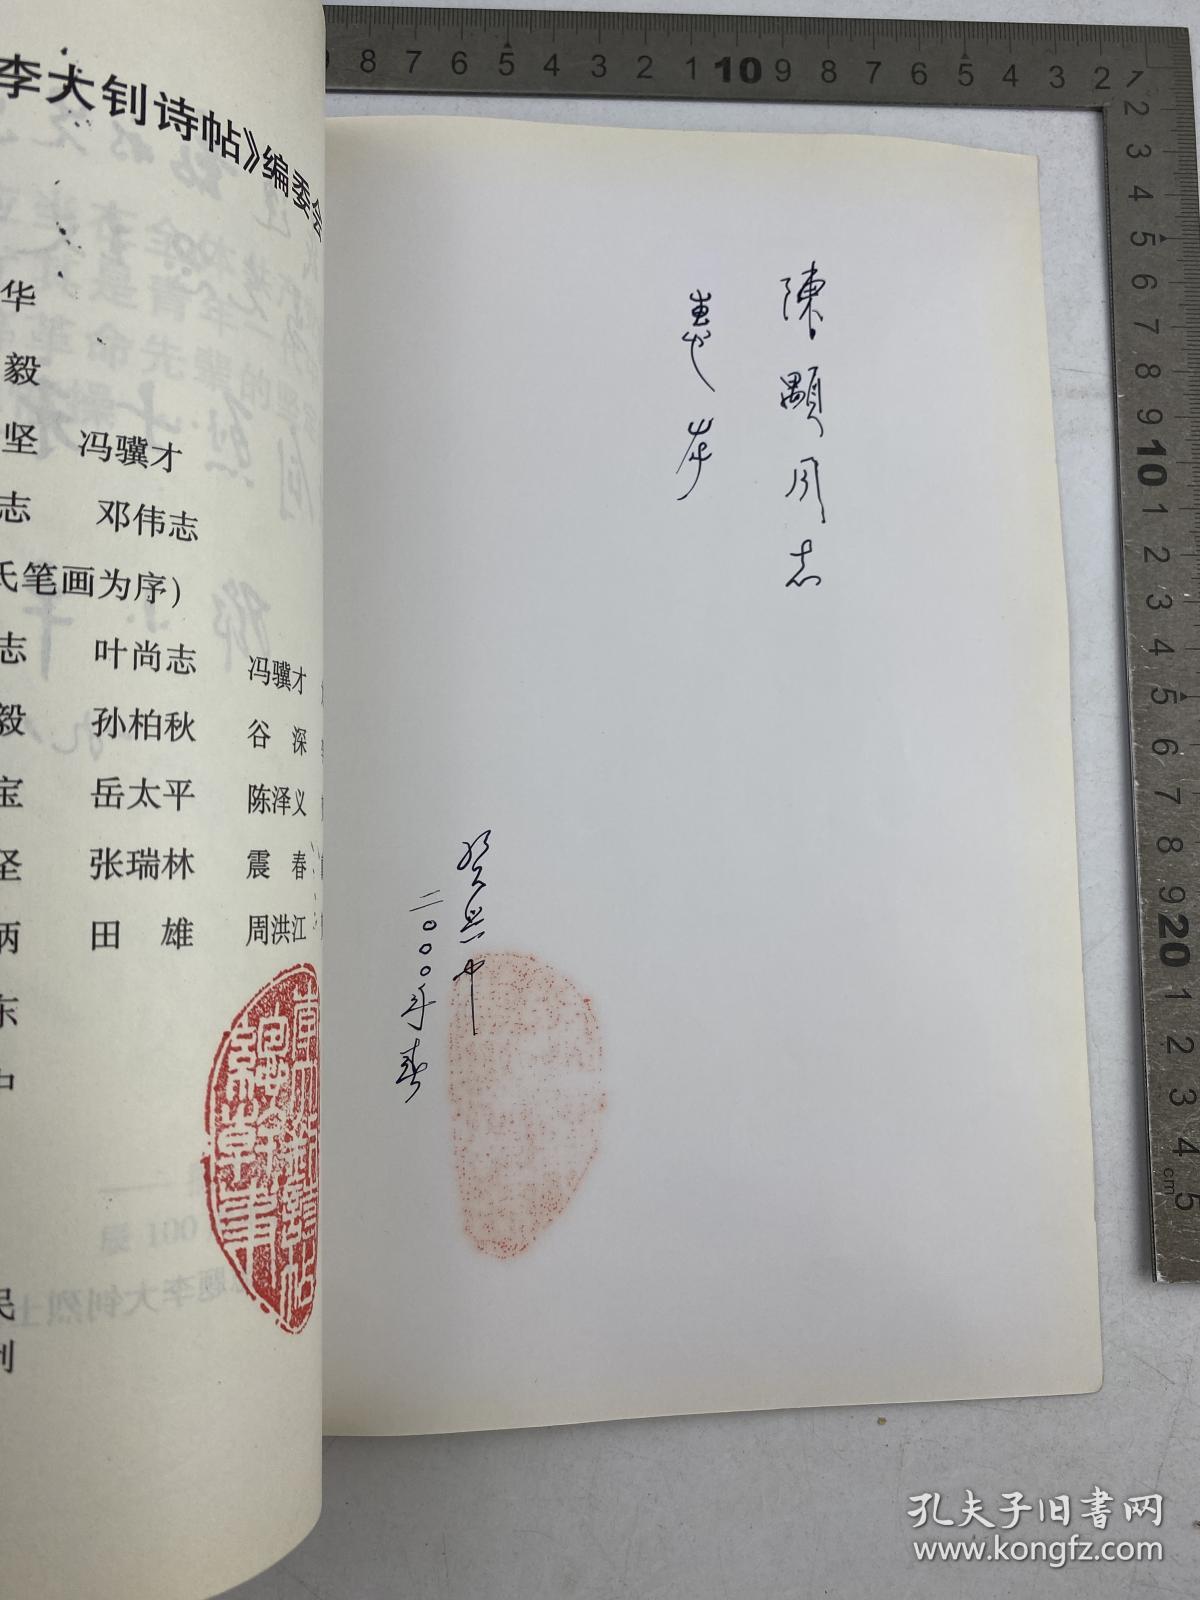 李大钊诗帖》编委会
华
毅
坚 冯骥才
志 邓伟志
氏笔画为序)
志 叶尚志 冯骥才
毅 孙柏秋 谷 深
宝 岳太平 陈泽义
坚 张瑞林 震 春
炳 田 雄 周洪江
东
中
民
钊
陳顯同志
惠存
二〇〇〇年春
8 7 6 5 4 3 2 1 10 9 8 7 6 5 4 3 2 1
2 3 4 5 6 7 8 9 10 1 2 3 4 5 6 7 8 9 20 1 2 3 4 5
cm
孔夫子旧书网
www.kongfz.com